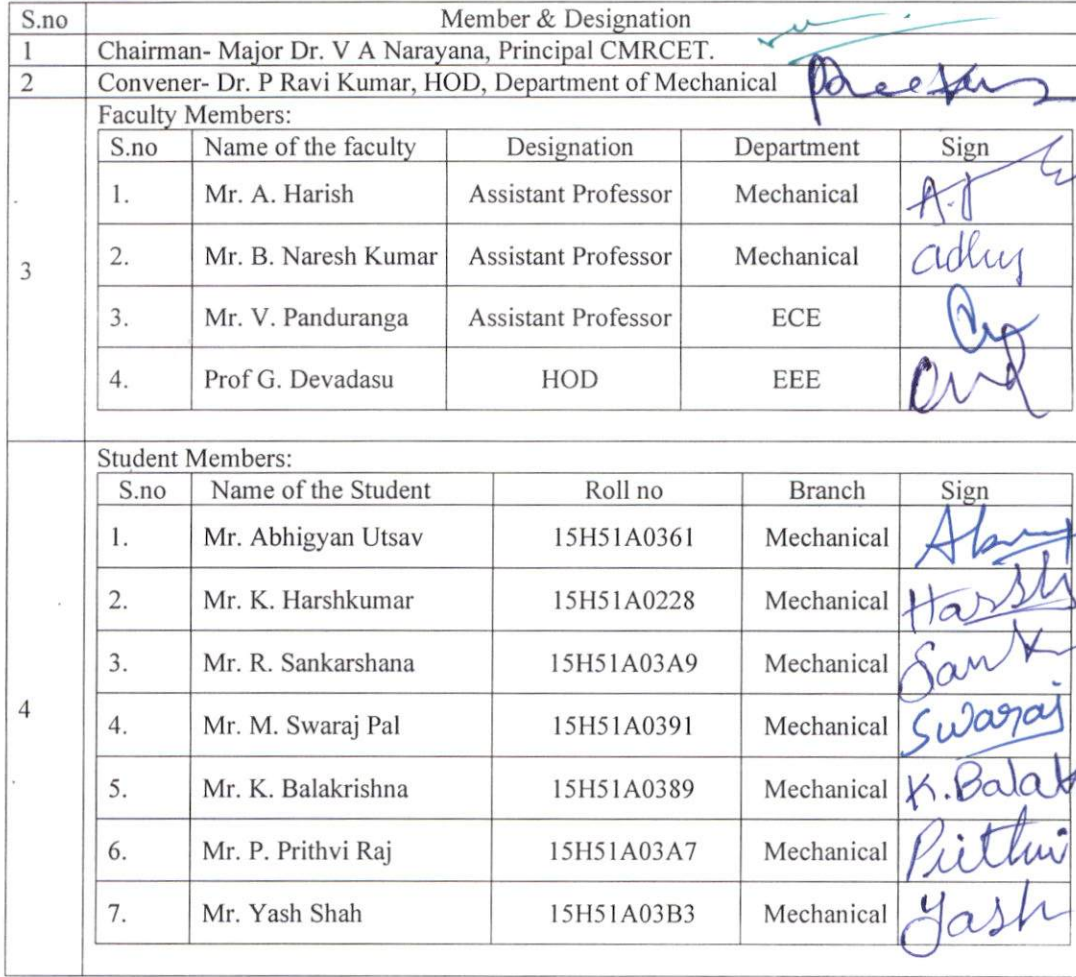 S.no Member & Designation
1 Chairman- Major Dr. V A Narayana, Principal CMRCET.
2 Convener- Dr. P Ravi Kumar, HOD, Department of Mechanical
3 Faculty Members:
S.no Name of the faculty Designation Department Sign
1. Mr. A. Harish Assistant Professor Mechanical
2. Mr. B. Naresh Kumar Assistant Professor Mechanical
3. Mr. V. Panduranga Assistant Professor ECE
4. Prof G. Devadasu HOD EEE
4 Student Members:
S.no Name of the Student Roll no Branch Sign
1. Mr. Abhigyan Utsav 15H51A0361 Mechanical
2. Mr. K. Harshkumar 15H51A0228 Mechanical Harsh
3. Mr. R. Sankarshana 15H51A03A9 Mechanical Sank
4. Mr. M. Swaraj Pal 15H51A0391 Mechanical Swaraj
5. Mr. K. Balakrishna 15H51A0389 Mechanical K.Balak
6. Mr. P. Prithvi Raj 15H51A03A7 Mechanical Prithvi
7. Mr. Yash Shah 15H51A03B3 Mechanical Yash